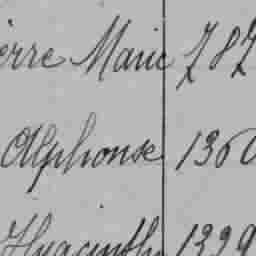 erre Marie 787
Alphonse 1360
Hyacinthe 1399